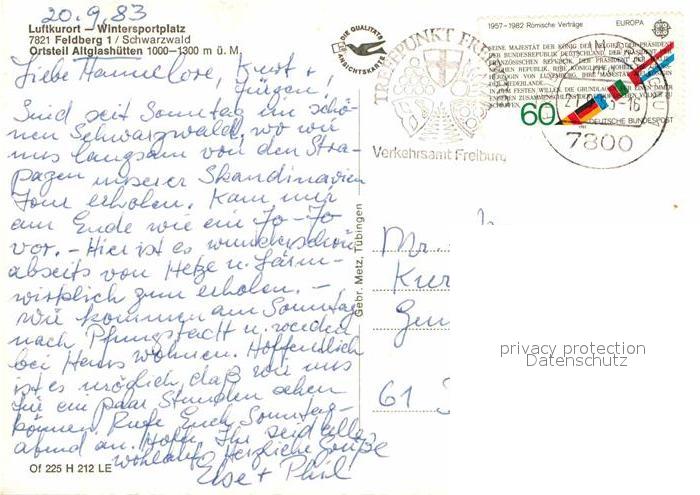 20.9.83
Luftkurort – Wintersportplatz
7821 Feldberg 1 / Schwarzwald
Ortsteil Altglashütten 1000–1300 m ü. M.
Liebe Hannelore, Kurt +
Jürgen,
Sind seit Sonntag im schö-
nen Schwarzwald, wo wir
uns langsam von den Stra-
pazen unserer Skandinavien
Tour erholen. Kam mir
am Ende wie ein Jo-Jo
vor. – Hier ist es wunderschön
abseits von Hetze u. Lärm –
wirklich zum erholen. –
Wir kommen am Sonntag
nach Pfungstadt u. werden
bei Henns wohnen. Hoffentlich
ist es möglich, daß wir uns
für ein paar Stunden sehen
können. Rufe Euch Sonntag-
abend an. Hoffe Ihr seid alle
wohlauf. Herzliche Grüße
Else + Phil
Of 225 H 212 LE
Gebr. Metz, Tübingen
DIE QUALITÄTS
ANSICHTSKARTE
TREFFPUNKT FREIBURG
Verkehrsamt Freiburg
1957–1982 Römische Verträge EUROPA
SEINE MAJESTÄT DER KÖNIG DER BELGIER, DER PRÄSIDENT
DER BUNDESREPUBLIK DEUTSCHLAND, DER PRÄSIDENT DER
FRANZÖSISCHEN REPUBLIK, DER PRÄSIDENT DER
ITALIENISCHEN REPUBLIK, IHRE KÖNIGLICHE HOHEIT DIE
GROSSHERZOGIN VON LUXEMBURG, IHRE MAJESTÄT DIE KÖNIGIN
DER NIEDERLANDE
IN DEM FESTEN WILLEN, DIE GRUNDLAGEN FÜR EINEN IMMER
ENGEREN ZUSAMMENSCHLUSS DER EUROPÄISCHEN VÖLKER ZU
SCHAFFEN
60
DEUTSCHE BUNDESPOST
7800
Mr.
Kur
61
privacy protection
Datenschutz